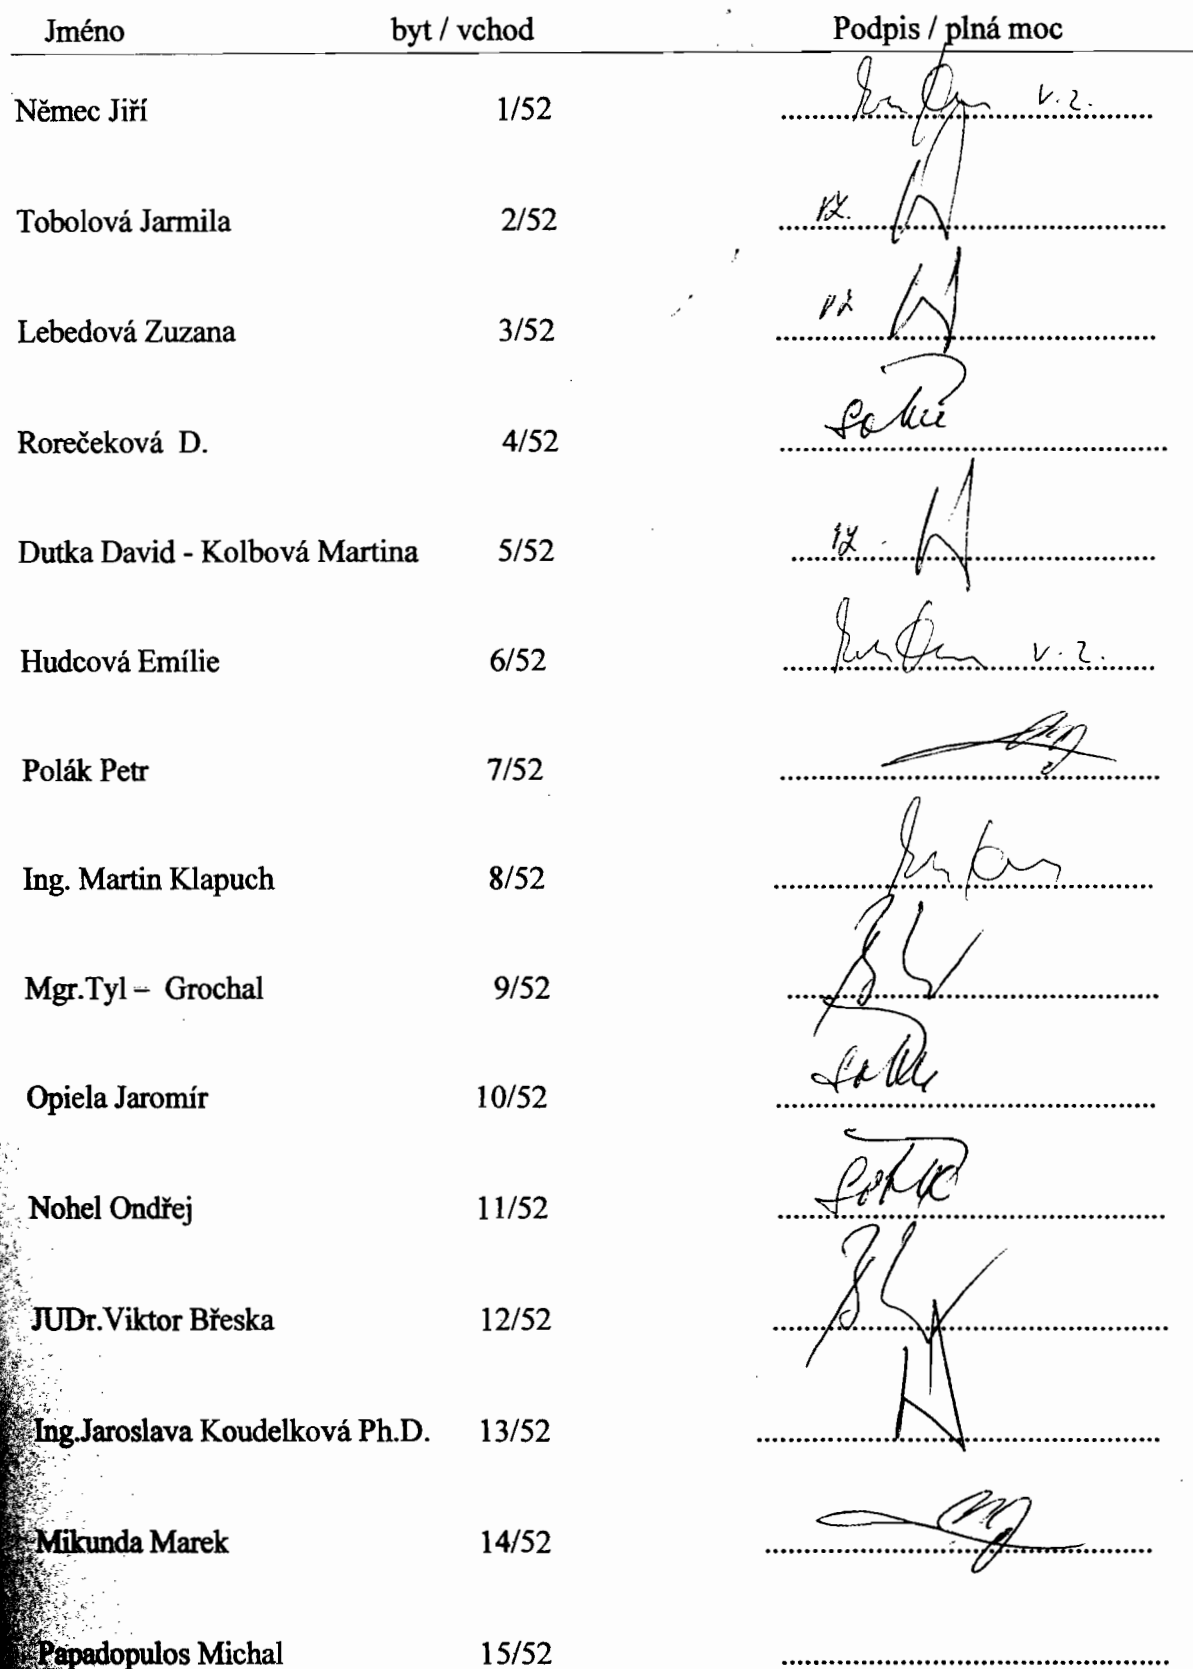 Jméno byt / vchod Podpis / plná moc
Němec Jiří 1/52 v.z.
Tobolová Jarmila 2/52 vz.
Lebedová Zuzana 3/52 vz
Rorečeková D. 4/52
Dutka David - Kolbová Martina 5/52 vz.
Hudcová Emílie 6/52 v.z.
Polák Petr 7/52
Ing. Martin Klapuch 8/52
Mgr.Tyl – Grochal 9/52
Opiela Jaromír 10/52
Nohel Ondřej 11/52
JUDr.Viktor Břeska 12/52
Ing.Jaroslava Koudelková Ph.D. 13/52
Mikunda Marek 14/52
Papadopulos Michal 15/52